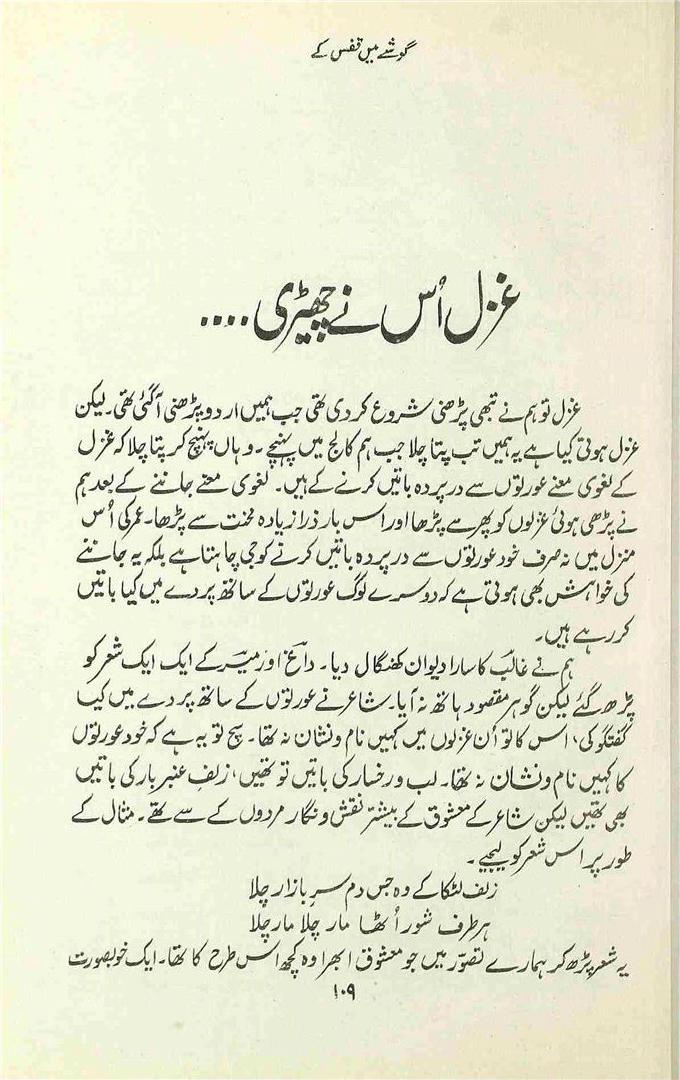 گوشے میں قفس کے
غزل اُس نے چھیڑی ....
غزل تو ہم نے تبھی پڑھنی شروع کر دی تھی جب ہمیں اردو پڑھنی آ گئی تھی۔ لیکن
غزل ہوتی کیا ہے یہ ہمیں تب پتا چلا جب ہم کالج میں پہنچے۔ وہاں پہنچ کر پتا چلا کہ غزل
کے لغوی معنے عورتوں سے در پردہ باتیں کرنے کے ہیں۔ لغوی معنے جاننے کے بعد ہم
نے پڑھی ہوئی غزلوں کو پھر سے پڑھا اور اس بار ذرا زیادہ محنت سے پڑھا۔ عمر کی اُس
منزل میں نہ صرف خود عورتوں سے در پردہ باتیں کرنے کو جی چاہتا ہے بلکہ یہ جاننے
کی خواہش بھی ہوتی ہے کہ دوسرے لوگ عورتوں کے ساتھ پردے میں کیا باتیں
کر رہے ہیں۔
ہم نے غالبؔ کا سارا دیوان کھنگال دیا۔ داغؔ اور میرؔ کے ایک ایک شعر کو
پڑھ گئے لیکن گوہرِ مقصود ہاتھ نہ آیا۔ شاعر نے عورتوں کے ساتھ پردے میں کیا
گفتگو کی، اس کا تو اُن غزلوں میں کہیں نام و نشان نہ تھا۔ سچ تو یہ ہے کہ خود عورتوں
کا کہیں نام و نشان نہ تھا۔ لب و رخسار کی باتیں تو تھیں، زلفِ عنبر بار کی باتیں
بھی تھیں لیکن شاعر کے معشوق کے بیشتر نقش و نگار مردوں کے سے تھے۔ مثال کے
طور پر اس شعر کو لیجیے۔
زلف لٹکا کے وہ جس دم سرِ بازار چلا
ہر طرف شور اُٹھا مار چلا مار چلا
یہ شعر پڑھ کر ہمارے تصوّر میں جو معشوق ابھرا وہ کچھ اس طرح کا تھا۔ ایک خوبصورت
۱۰۹